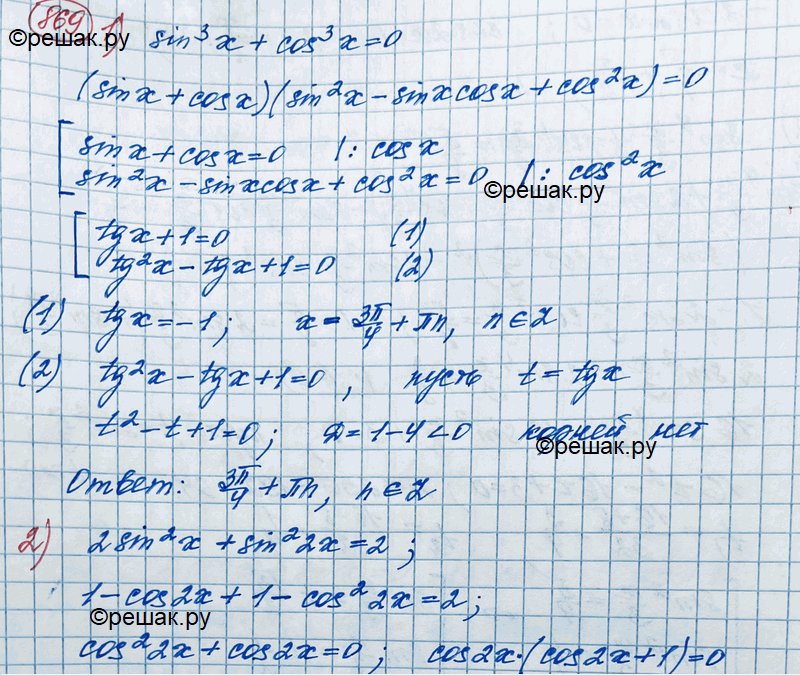 869
©решак.ру
1) sin³x + cos³x = 0
(sinx + cosx)(sin²x − sinxcosx + cos²x) = 0
[ sinx + cosx = 0 |: cosx
sin²x − sinxcosx + cos²x = 0 |: cos²x
©решак.ру
[ tgx + 1 = 0 (1)
tg²x − tgx + 1 = 0 (2)
(1) tgx = −1; x = 3π/4 + πn, n ∈ Z
(2) tg²x − tgx + 1 = 0, пусть t = tgx
t² − t + 1 = 0; Д = 1 − 4 < 0 корней нет
©решак.ру
Ответ: 3π/4 + πn, n ∈ Z
2) 2sin²x + sin²2x = 2;
1 − cos2x + 1 − cos²2x = 2;
©решак.ру
cos²2x + cos2x = 0; cos2x·(cos2x + 1) = 0